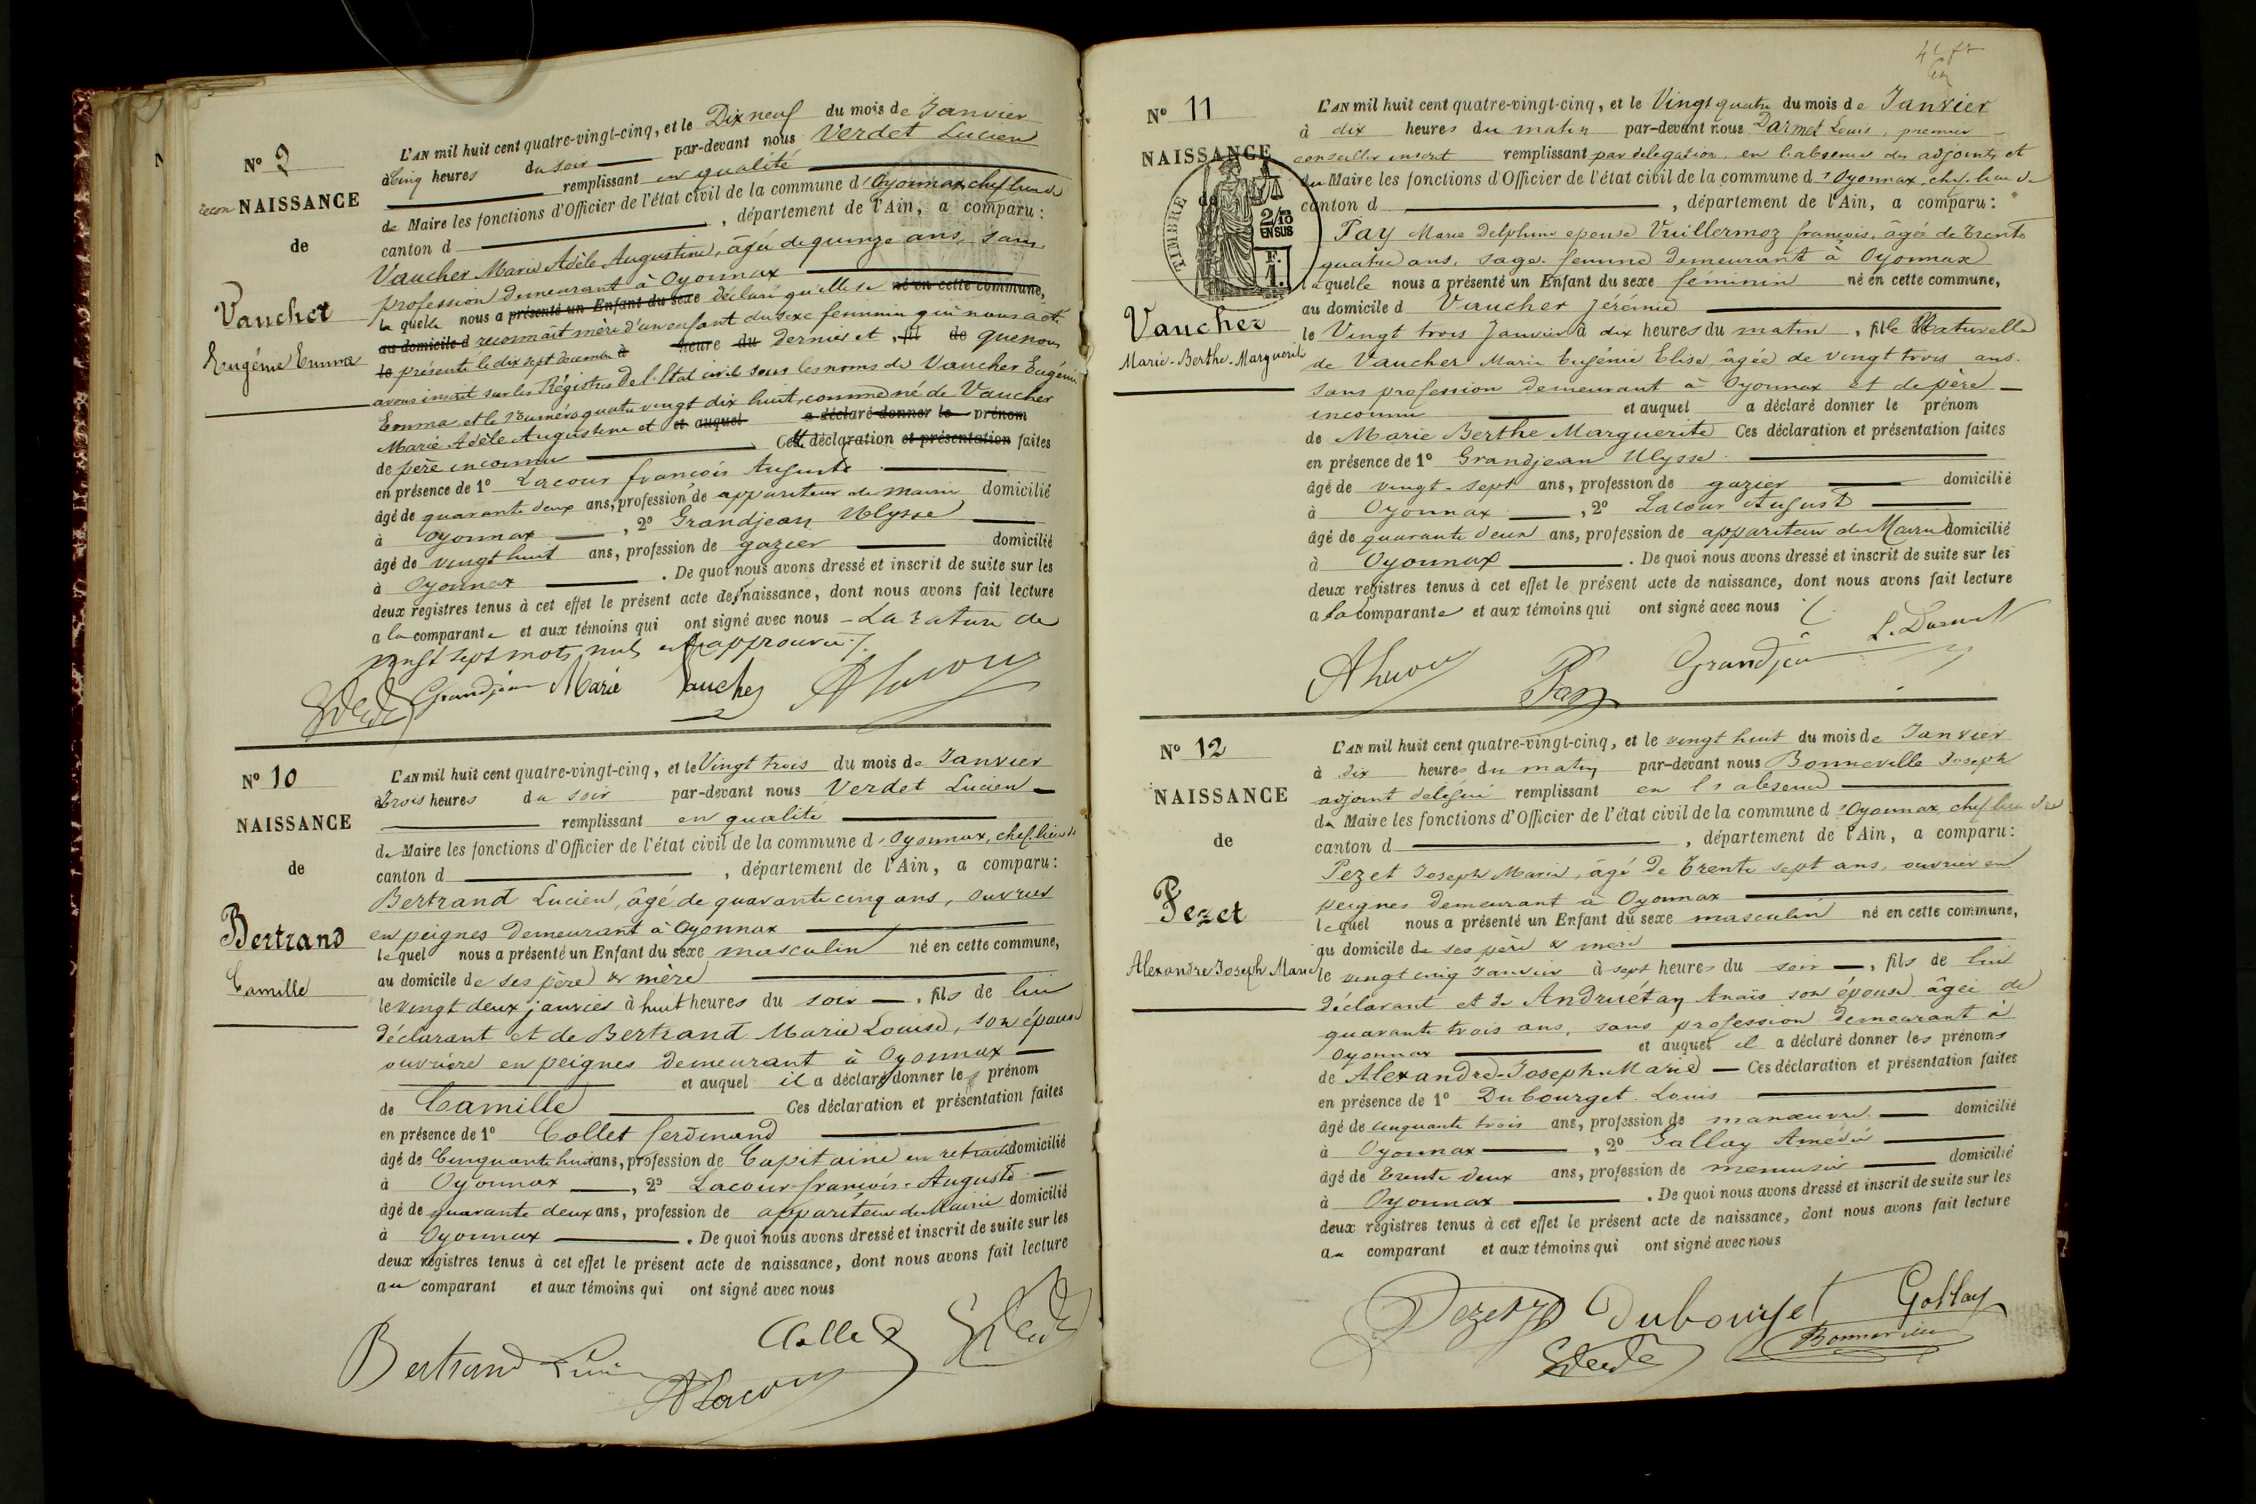 N° 9
reconNAISSANCE
de
Vaucher
Eugénie Emma
L'AN mil huit cent quatre-vingt-cinq, et le Dix neuf du mois de Janvier
à Cinq heures du soir par-devant nous Verdet Lucien
remplissant en qualité
de Maire les fonctions d'Officier de l'état civil de la commune d'Oyonnax, chef lieu de
canton d , département de l'Ain, a comparu :
Vaucher Marie Adèle Augustine, âgée de quinze ans, sans
profession demeurant à Oyonnax
la quelle nous a présenté un Enfant du sexe déclaré qu'elle se né en cette commune,
au domicile d reconnaît mère d'un enfant du sexe féminin qui nous a été
le présenté le dix sept décembre à heure du dernier et , fil de que nous
avons inscrit sur les Régistres de l'Etat civil sous les noms de Vaucher Eugénie
Emma et le Numéro quatre vingt dix huit, comme né de Vaucher
Marie Adèle Augustine et et auquel a déclaré donner le prénom
de père inconnu Cette déclaration et présentation faites
en présence de 1° Lacour françois Auguste
âgé de quarante deux ans, profession de appariteur de Mairie domicilié
à Oyonnax , 2° Grandjean Ulysse
âgé de vingt huit ans, profession de gazier domicilié
à Oyonnax . De quoi nous avons dressé et inscrit de suite sur les
deux registres tenus à cet effet le présent acte de naissance, dont nous avons fait lecture
a la comparante et aux témoins qui ont signé avec nous - La rature de
vingt sept mots nuls est approuvée ./.
Grandjean Marie Vaucher ALacour
N° 10
NAISSANCE
de
Bertrand
Camille
L'AN mil huit cent quatre-vingt-cinq, et le Vingt trois du mois de Janvier
à Trois heures du soir par-devant nous Verdet Lucien
remplissant en qualité
de Maire les fonctions d'Officier de l'état civil de la commune d'Oyonnax, chef lieu de
canton d , département de l'Ain, a comparu :
Bertrand Lucien, âgé de quarante cinq ans, ouvrier
en peignes demeurant à Oyonnax
lequel nous a présenté un Enfant du sexe masculin né en cette commune,
au domicile de ses père & mère
le vingt deux janvier à huit heures du soir , fils de lui
déclarant et de Bertrand Marie Louise, son épouse
ouvrière en peignes demeurant à Oyonnax
et auquel il a déclaré donner le prénom
de Camille Ces déclaration et présentation faites
en présence de 1° Collet ferdinand
âgé de Cinquante huit ans, profession de Capitaine en retraite domicilié
à Oyonnax , 2° Lacour françois-Auguste
âgé de quarante deux ans, profession de appariteur de Mairie domicilié
à Oyonnax . De quoi nous avons dressé et inscrit de suite sur les
deux registres tenus à cet effet le présent acte de naissance, dont nous avons fait lecture
au comparant et aux témoins qui ont signé avec nous
Collet
Bertrand Lucien ALacour
N° 11
NAISSANCE
de
TIMBRE
2/10 EN SUS
F. 1.
Vaucher
Marie-Berthe-Marguerite
L'AN mil huit cent quatre-vingt-cinq, et le Vingt quatre du mois de Janvier
à dix heures du matin par-devant nous Darmet Louis, premier
conseiller inscrit remplissant par délégation, en l'absence des adjoints et
du Maire les fonctions d'Officier de l'état civil de la commune d'Oyonnax, chef-lieu de
canton d , département de l'Ain, a comparu :
Pay Marie Delphine épouse Vuillermoz françois, âgée de trente
quatre ans, sage-femme demeurant à Oyonnax
laquelle nous a présenté un Enfant du sexe féminin né en cette commune,
au domicile d Vaucher Jérémie
le Vingt trois Janvier à dix heures du matin , fille Naturelle
de Vaucher Marie Eugénie Elise, âgée de vingt trois ans.
sans profession demeurant à Oyonnax et de père
inconnu et auquel a déclaré donner le prénom
de Marie Berthe Marguerite Ces déclaration et présentation faites
en présence de 1° Grandjean Ulysse
âgé de vingt-sept ans, profession de gazier domicilié
à Oyonnax , 2° Lacour August
âgé de quarante deux ans, profession de appariteur de Mairie domicilié
à Oyonnax . De quoi nous avons dressé et inscrit de suite sur les
deux registres tenus à cet effet le présent acte de naissance, dont nous avons fait lecture
a la comparante et aux témoins qui ont signé avec nous
ALacour Pay Grandjean L. Darmet
N° 12
NAISSANCE
de
Pezet
Alexandre Joseph Marie
L'AN mil huit cent quatre-vingt-cinq, et le vingt huit du mois de Janvier
à dix heures du matin par-devant nous Bonneville Joseph
adjoint délégué remplissant en l'absence
du Maire les fonctions d'Officier de l'état civil de la commune d'Oyonnax, chef lieu de
canton d , département de l'Ain, a comparu :
Pezet Joseph Marie, âgé de trente sept ans, ouvrier en
peignes demeurant à Oyonnax
lequel nous a présenté un Enfant du sexe masculin né en cette commune,
au domicile de ses père & mère
le vingt cinq Janvier à sept heures du soir , fils de lui
déclarant et de Andruétan Anaïs son épouse âgée de
quarante trois ans, sans profession demeurant à
Oyonnax et auquel il a déclaré donner les prénoms
de Alexandre-Joseph-Marie Ces déclaration et présentation faites
en présence de 1° Dubourget Louis
âgé de cinquante trois ans, profession de manœuvre domicilié
à Oyonnax , 2° Gallay Amédée
âgé de trente deux ans, profession de menuisier domicilié
à Oyonnax . De quoi nous avons dressé et inscrit de suite sur les
deux registres tenus à cet effet le présent acte de naissance, dont nous avons fait lecture
au comparant et aux témoins qui ont signé avec nous
Pezet Dubourget Gallay
Bonneville